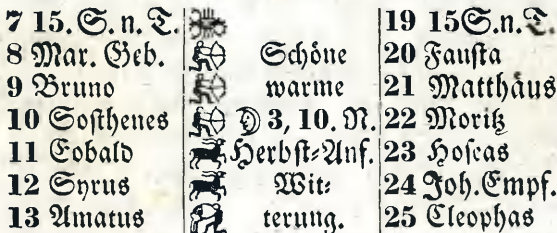 7 15. S. n. T. 19 15 S. n. T.
8 Mar. Geb. Schöne 20 Fausta
9 Bruno warme 21 Matthäus
10 Sosthenes 3, 10. N. 22 Moritz
11 Cobald Herbst-Anf. 23 Hoseas
12 Syrus Wit- 24 Joh. Empf.
13 Amatus terung. 25 Cleophas